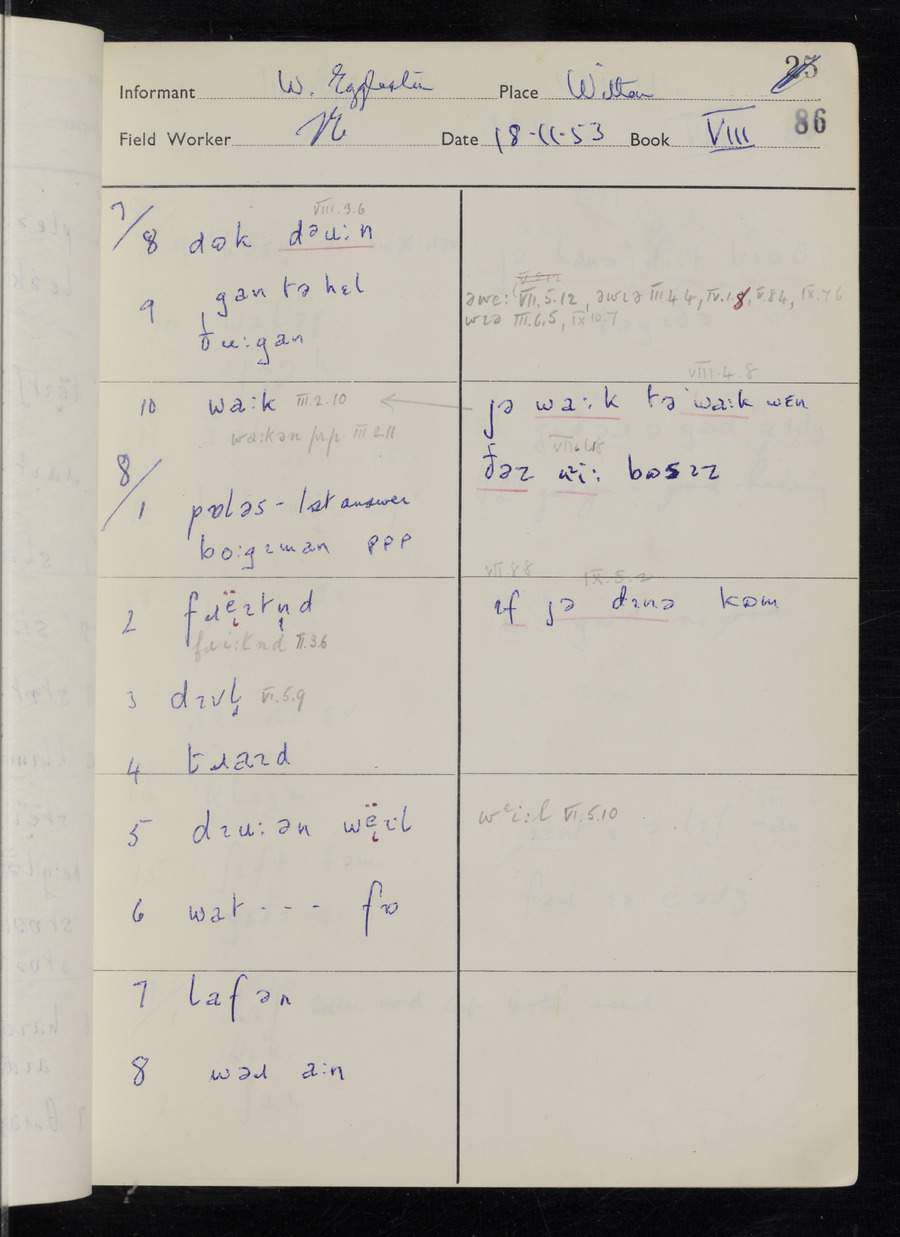 25
Informant W. Egglestin Place Witton
86
Field Worker Date 18-11-53 Book VIII
7/
VIII.3.6
8 dɷk dəu:n
9 gan tə hɛl
ðu:gan
əwɛ: VII.5.12, əwɪə III 4 4, IV.1.8, V.8 4, IX.7 6
wɪə III.6.5, IX 10.7
VIII.4.8
10 wa:k III.2.10
jə wa:k tə wa:k wɛn
wa:kən prp. III.2.11
ðəz nəi: bɒsɪz
8/
1 pɒləs - 1st answer
bo:gɪman PPP
VII.8.8 IX.5.2
2 fɹëɪtn̩d
ɪf jə dɪnə kɷm
fɹi:tnd II.3.6
3 dɪvl̩ VI.5.9
4 tɹaɪd
5 dɪu:ən wëɪl
wᵉi:l VI.5.10
6 wat - - - fɒ
7 lafən
8 wəɹ a:n